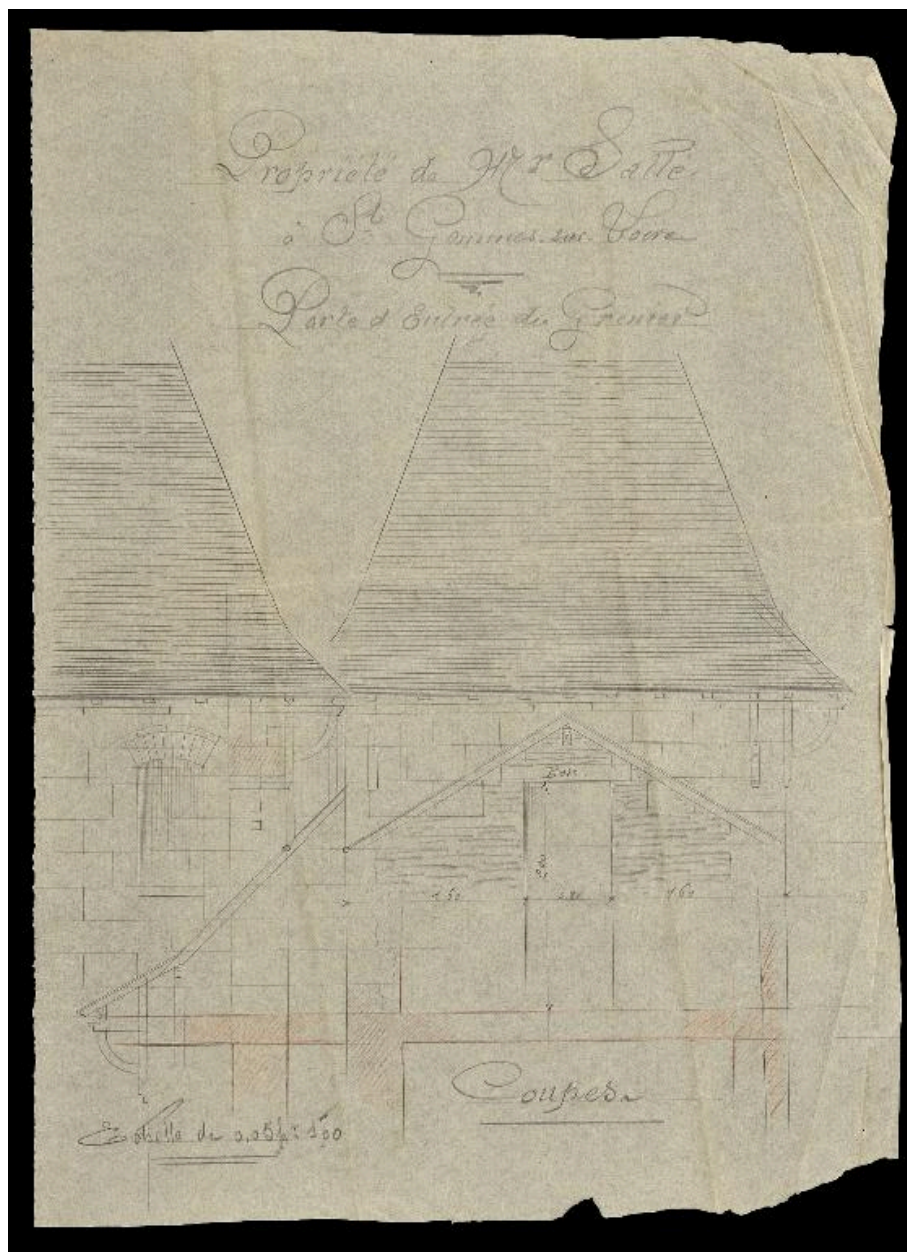 Propriété de Mr Sallé.
à St Gemmes-sur-Loire
Porte d'Entrée du Grenier
Bois
2.00
1.50 1.60
Coupes
Echelle de 0,05